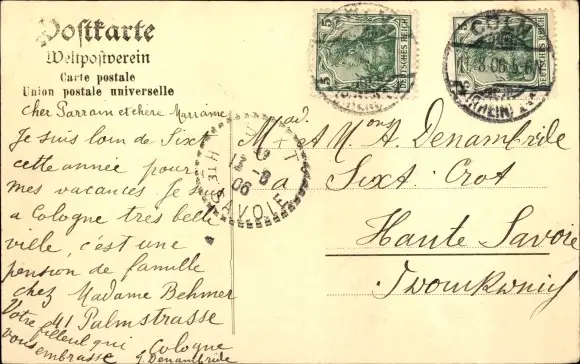 Postkarte
Weltpostverein
Carte postale
Union postale universelle
cher Parrain et chère Marraine
Je suis loin de Sixt
cette année pour
mes vacances Je suis
a Cologne très belle
ville, c'est une
pension de famille
chez Madame Behmer
41 Palmstrasse
Cologne
Votre filleul qui
vous embrasse
J. Denambride
Mad. et Mons A. Denambride
a Sixt Crot
Haute Savoie
5
5
DEUTSCHES REICH
DEUTSCHES REICH
CÖLN
11.8.06.
(RHEIN)
SIXT
13 -8
06
HTE SAVOIE